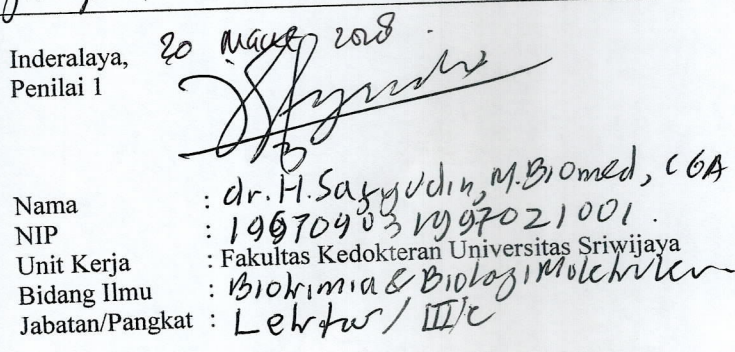 Inderalaya, 20 Maret 2018.
Penilai 1
Nama : dr. H. Safyudin, M.Biomed, CGA
NIP : 196709031997021001.
Unit Kerja : Fakultas Kedokteran Universitas Sriwijaya
Bidang Ilmu : Biokimia & Biologi Molekuler
Jabatan/Pangkat : Lektor / III/c